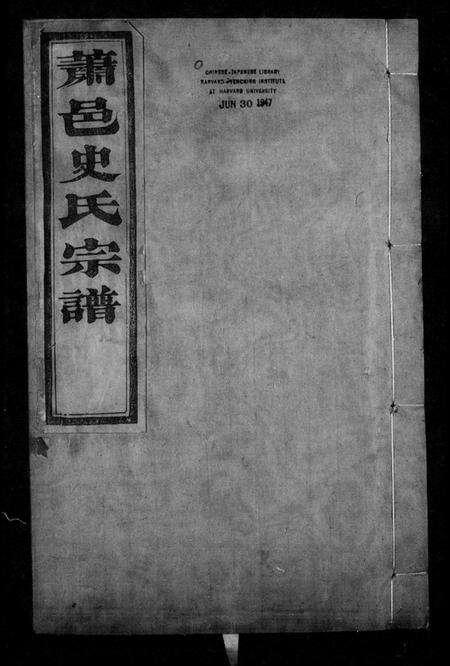 蕭邑史氏宗譜
CHINESE-JAPANESE LIBRARY
HARVARD-YENCHING INSTITUTE
AT HARVARD UNIVERSITY
JUN 30 1947